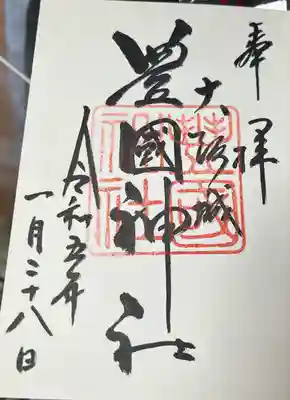 奉拝
大阪城
豊國神社
令和五年
一月二十八日